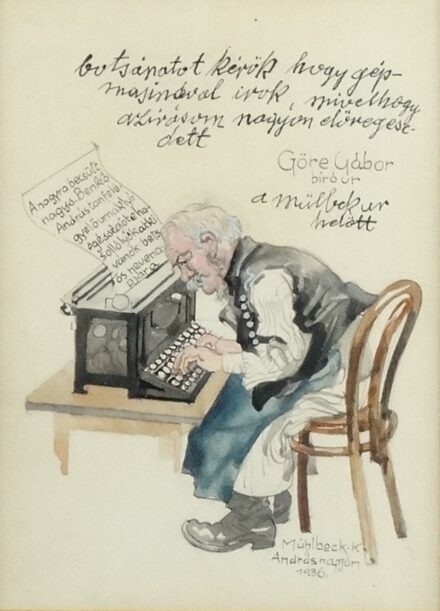 botsánatot kérök hogy gép-
masinával irok, mivelhogy
azirásom nagyon elöregese-
dett
Göre Gábor
biró úr
a mülbek ur
helött
A nagyra betsült
nagys. Benkő
András tanfelü
gyelő urnak jó
egésségöt e ha
sollójókat ki
vánok bets
ös nevena
pjára
Mühlbeck.K.
Andrásnapján
1936.